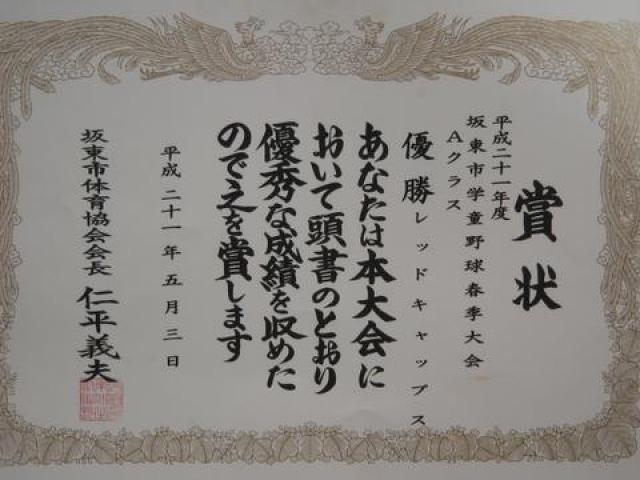 賞状
平成二十一年度
坂東市学童野球春季大会
Aクラス
優勝レッドキャップス
あなたは本大会に
おいて頭書のとおり
優秀な成績を収めた
ので之を賞します
平成二十一年五月三日
坂東市体育協会会長 仁平義夫